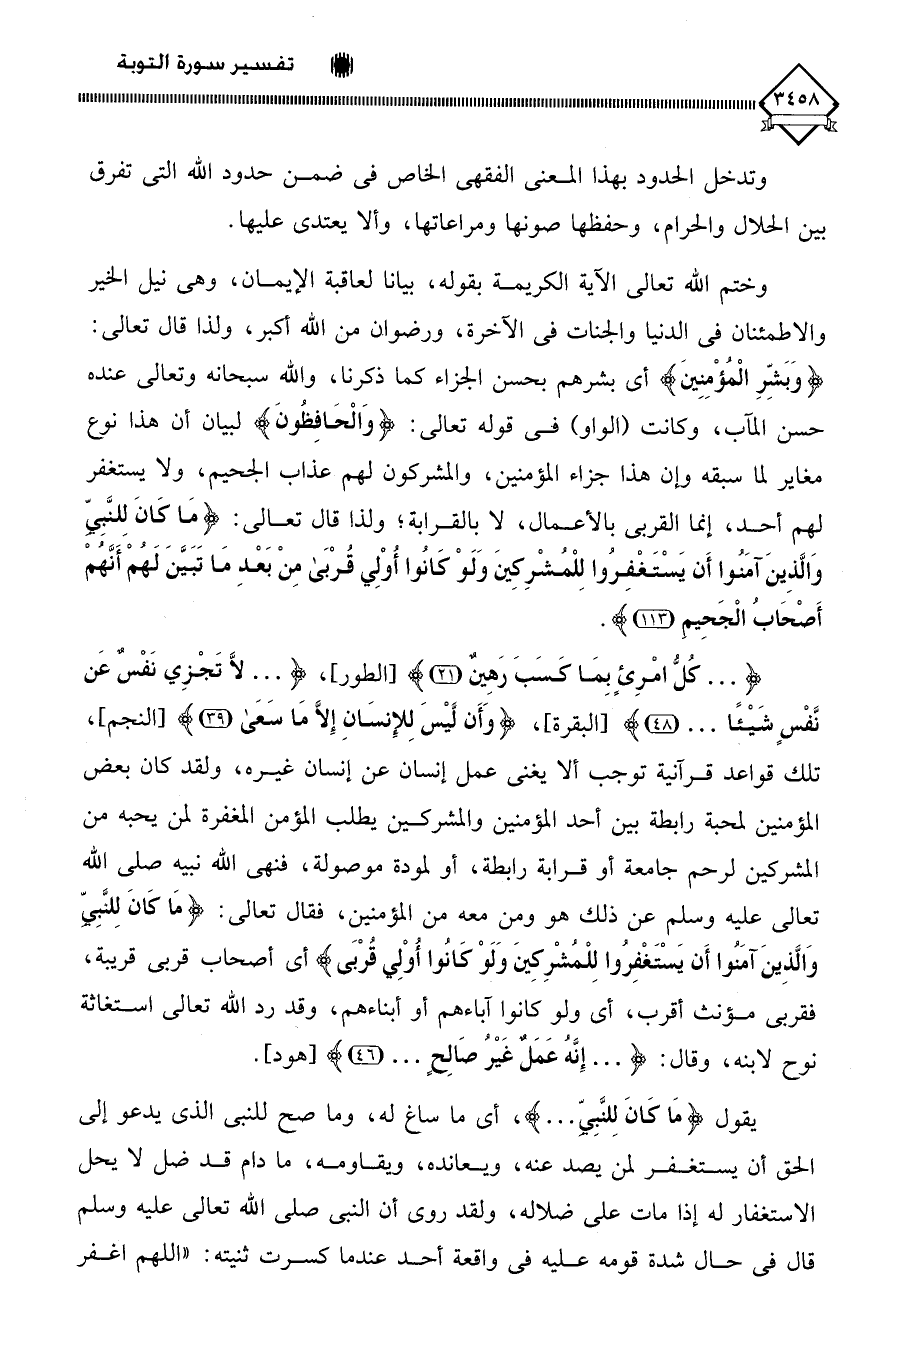 تفسير سورة التوبة
٣٤٥٨
وتدخل الحدود بهذا المعنى الفقهى الخاص فى ضمن حدود الله التى تفرق
بين الحلال والحرام، وحفظها صونها ومراعاتها، وألا يعتدى عليها.
وختم الله تعالى الآية الكريمة بقوله، بيانا لعاقبة الإيمان، وهى نيل الخير
والاطمئنان فى الدنيا والجنات فى الآخرة، ورضوان من الله أكبر، ولذا قال تعالى:
﴿وَبَشِّرِ الْمُؤْمِنِينَ﴾ أى بشرهم بحسن الجزاء كما ذكرنا، والله سبحانه وتعالى عنده
حسن المآب، وكانت (الواو) فى قوله تعالى: ﴿وَالْحَافِظُونَ﴾ لبيان أن هذا نوع
مغاير لما سبقه وإن هذا جزاء المؤمنين، والمشركون لهم عذاب الجحيم، ولا يستغفر
لهم أحد، إنما القربى بالأعمال، لا بالقرابة؛ ولذا قال تعالى: ﴿مَا كَانَ لِلنَّبِيِّ
وَالَّذِينَ آمَنُوا أَن يَسْتَغْفِرُوا لِلْمُشْرِكِينَ وَلَوْ كَانُوا أُوْلِي قُرْبَىٰ مِنْ بَعْدِ مَا تَبَيَّنَ لَهُمْ أَنَّهُمْ
أَصْحَابُ الْجَحِيمِ (١١٣)﴾.
﴿... كُلُّ امْرِئٍ بِمَا كَسَبَ رَهِينٌ (٢١)﴾ [الطور]، ﴿... لاَّ تَجْزِي نَفْسٌ عَن
نَّفْسٍ شَيْئًا ... (٤٨)﴾ [البقرة]، ﴿وَأَن لَّيْسَ لِلإِنسَانِ إِلاَّ مَا سَعَىٰ (٣٩)﴾ [النجم]،
تلك قواعد قرآنية توجب ألا يغنى عمل إنسان عن إنسان غيره، ولقد كان بعض
المؤمنين لمحبة رابطة بين أحد المؤمنين والمشركين يطلب المؤمن المغفرة لمن يحبه من
المشركين لرحم جامعة أو قرابة رابطة، أو لمودة موصولة، فنهى الله نبيه صلى الله
تعالى عليه وسلم عن ذلك هو ومن معه من المؤمنين، فقال تعالى: ﴿مَا كَانَ لِلنَّبِيِّ
وَالَّذِينَ آمَنُوا أَن يَسْتَغْفِرُوا لِلْمُشْرِكِينَ وَلَوْ كَانُوا أُوْلِي قُرْبَى﴾ أى أصحاب قربى قريبة،
فقربى مؤنث أقرب، أى ولو كانوا آباءهم أو أبناءهم، وقد رد الله تعالى استغاثة
نوح لابنه، وقال: ﴿... إِنَّهُ عَمَلٌ غَيْرُ صَالِحٍ ... (٤٦)﴾ [هود].
يقول ﴿مَا كَانَ لِلنَّبِيِّ...﴾، أى ما ساغ له، وما صح للنبى الذى يدعو إلى
الحق أن يستغفر لمن يصد عنه، ويعانده، ويقاومه، ما دام قد ضل لا يحل
الاستغفار له إذا مات على ضلاله، ولقد روى أن النبى صلى الله تعالى عليه وسلم
قال فى حال شدة قومه عليه فى واقعة أحد عندما كسرت ثنيته: «اللهم اغفر